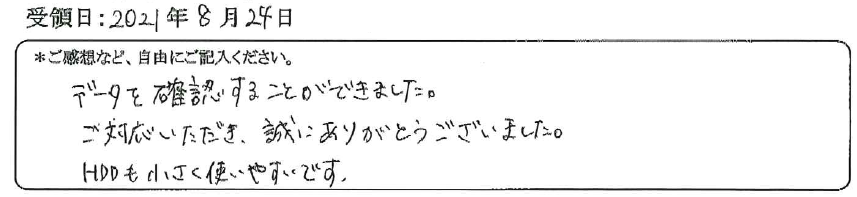 受領日：2021年8月24日
＊ご感想など、自由にご記入ください。
データを確認することができました。
ご対応いただき、誠にありがとうございました。
HDDも小さく使いやすいです。